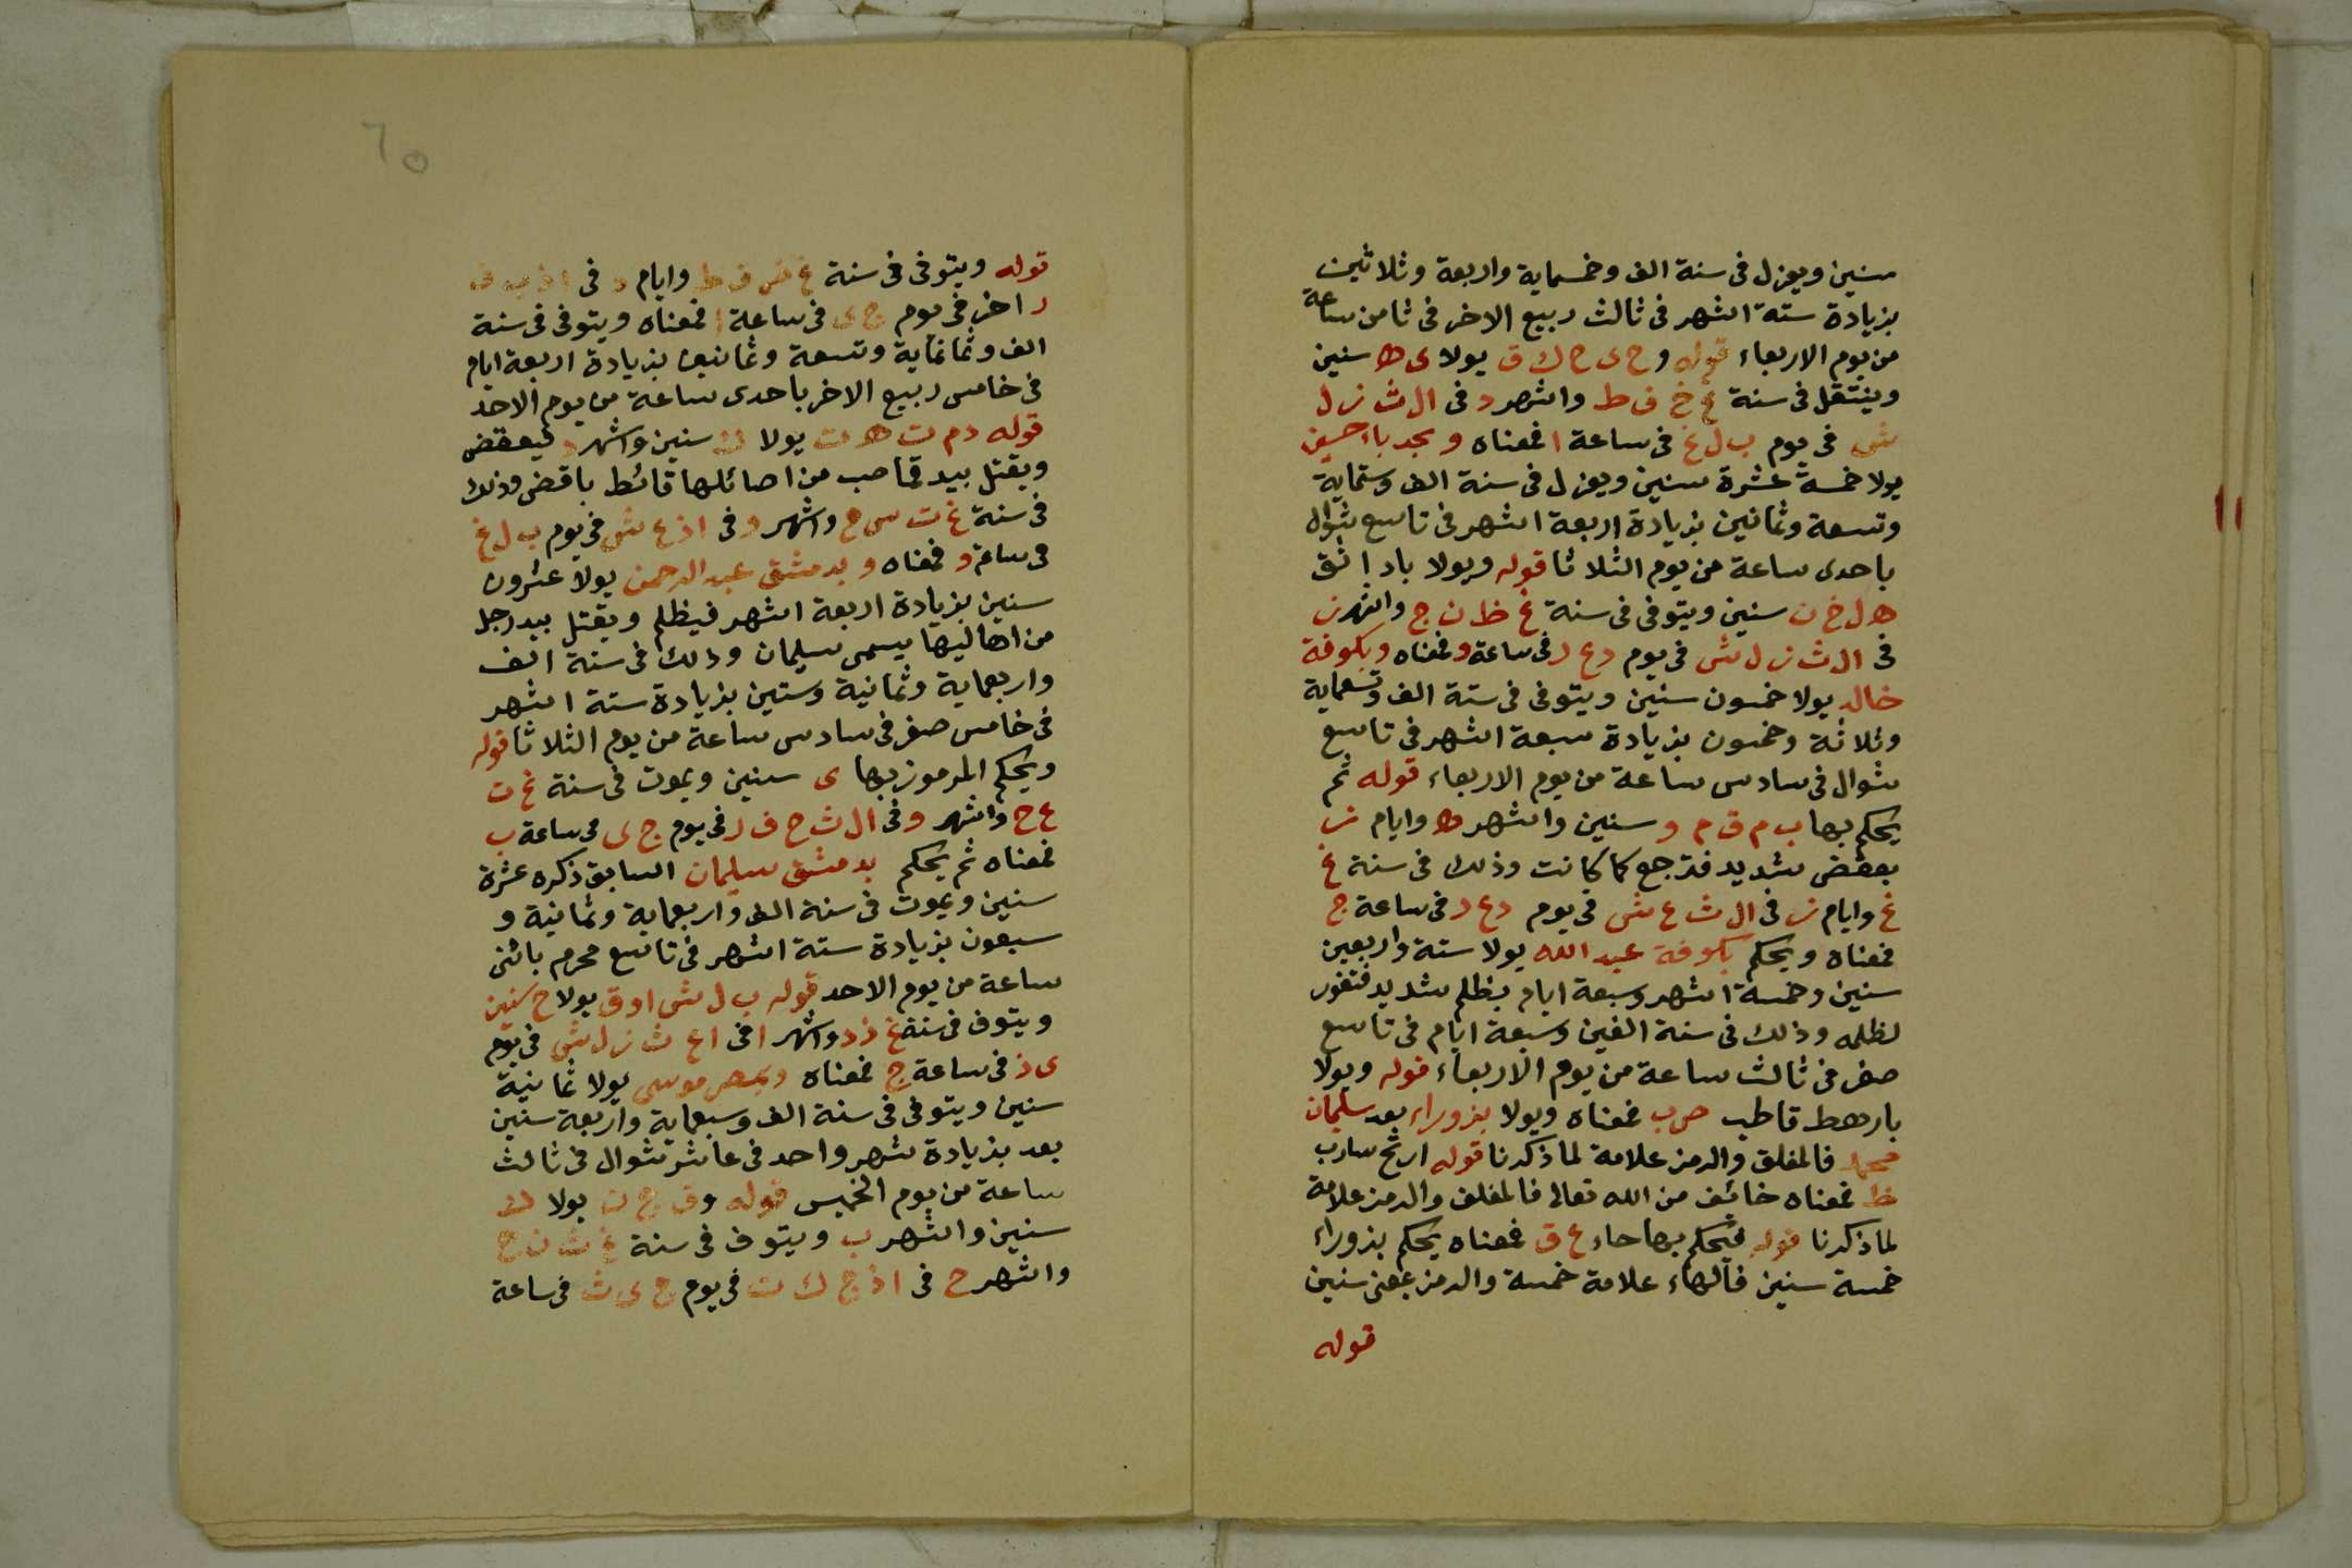 سنين ويعزل فى سنة الف وخمسماية واربعة وثلاثين
بزيادة ستة اشهر فى ثالث ربيع الاخر فى ثامن ساعة
من يوم الاربعاء قوله وح ى ح ك ق يولا ى ه سنين
وينتقل فى سنة غ خ ف ط واشهر د فى ال ث ز ل
ش فى يوم ب ل غ فى ساعة ا فمعناه وبجد باء حسين
يولا خمسة عشرة سنين ويعزل فى سنة الف وستماية
وتسعة وثمانين بزيادة اربعة اشهر فى تاسع شوال
باحدى ساعة من يوم الثلاثا قوله ويولا باد
ه ل خ ن سنين ويتوفى فى سنة غ ظ ن ج واشهر ز
فى ال ث ز ل ش فى يوم د ع د فى ساعة و فمعناه وبكوفة
خالد يولا خمسون سنين ويتوفى فى ستة الف وتسعماية
وثلاثة وخمسون بزيادة سبعة اشهر فى تاسع
شوال فى سادس ساعة من يوم الاربعاء قوله ثم
يحكم بها ب م ق م و سنين واشهر ه وايام ز
بعقض شديد فترجع كما كانت وذلك فى سنة غ
غ وايام ز فى ال ث ع ش فى يوم د ع د فى ساعة ج
فمعناه ويحكم بكوفة عبد الله يولا ستة واربعين
سنين وخمسة اشهر وسبعة ايام بظلم شديد فتغور
لظلمه وذلك فى سنة الفين وسبعة ايام فى تاسع
صفر فى ثالث ساعة من يوم الاربعاء قوله ويولا
بارهط قاطب حرب فمعناه ويولا بزوراء بعد سليمان
محمد فالمغلق والرمز علامة لما ذكرنا قوله سارب
ظ فمعناه خائف من الله تعالى فالمغلق والرمز علامة
لما ذكرنا قوله فيحكم بها حاء ع ق فمعناه يحكم بزوراء
خمسة سنين فالهاء علامة خمسة والرمز بمعنى سنين
قوله
٦٥
قوله ويتوفى فى سنة غ ض ف ط وايام د فى
ر اخر فى يوم ج ى فى ساعة ا فمعناه ويتوفى فى سنة
الف وثمانماية وتسعة وثمانين بزيادة اربعة ايام
فى خامس ربيع الاخر باحدى ساعة من يوم الاحد
قوله دم ت ه ت يولا ك سنين واشهر د فيعقض
ويقتل بيد قماصب من اصائلها قائط باقض وذلك
فى سنة غ ت س ح واشهر و فى اذ ع ش فى يوم ب ل غ
فى ساعة و فمعناه وبدمشق عبد الرحمن يولا عشرون
سنين بزيادة اربعة اشهر فيظلم ويقتل بيد رجل
من اهاليها يسمى سليمان وذلك فى سنة الف
واربعماية وثمانية وستين بزيادة ستة اشهر
فى خامس صفر فى سادس ساعة من يوم الثلاثا قوله
ويحكم المرموز بها ى سنين ويموت فى سنة غ ت
ع ح واشهر و فى ال ث ح ف ر فى يوم ج ى فى ساعة ب
فمعناه ثم يحكم بدمشق سليمان السابق ذكره عشرة
سنين ويموت فى سنة الف واربعماية وثمانية و
سبعون بزيادة ستة اشهر فى تاسع محرم باثنى
ساعة من يوم الاحد قوله ب ل ش اوق يولا ح سنين
ويتوف فى سنة غ ذ د واشهر ا فى اع ث ز ل ش فى يوم
ى ذ فى ساعة ج فمعناه وبمصر موسى يولا ثمانية
سنين ويتوفى فى سنة الف وسبعماية واربعة سنين
بعد بزيادة شهر واحد فى عاشر شوال فى ثالث
ساعة من يوم الخميس قوله وق ج ن يولا ك
سنين واشهر ب ويتوف فى سنة غ ث ن ج
واشهر ح فى اذ ج ك ت فى يوم ج ى ث فى ساعة